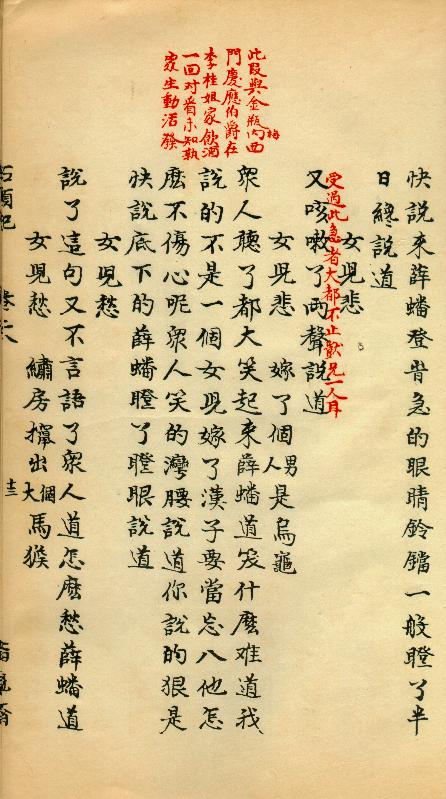 快說來薛蟠登时急的眼睛鈴鐺一般瞪了半
日終說道
女兒悲
受過此急者大都不止獃兄一人耳
又咳嗽了兩聲說道
女兒悲 嫁了個男人是烏龜
此段與金瓶梅内西
門慶應伯爵在
李桂姐家飲酒
一回对看未知孰
家生動活潑
衆人聽了都大笑起来薛蟠道笑什麽难道我
說的不是一個女兒嫁了漢子要當忘八他怎
麽不傷心呢衆人笑的灣腰說道你說的狠是
快說底下的薛蟠瞪了瞪眼說道
女兒愁
說了這句又不言語了衆人道怎麽愁薛蟠道
女兒愁 繡房攛出個大馬猴
石頭記
十三